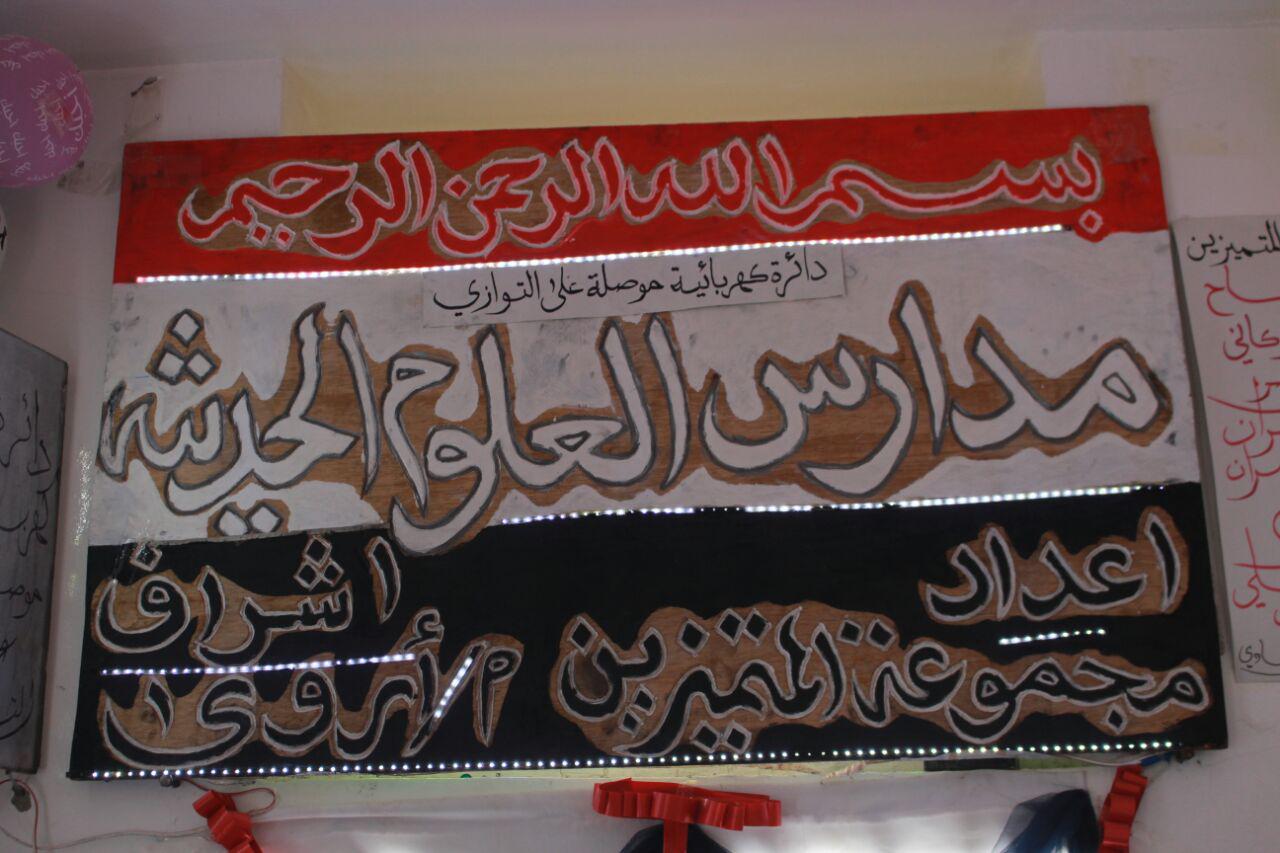 بسم الله الرحمن الرحيم
دائرة كهربائية موصلة على التوازي
مدارس العلوم الحديثه
اعداد
مجموعة المتميزين
اشراف
م/أروى
للتميزين
دائرة